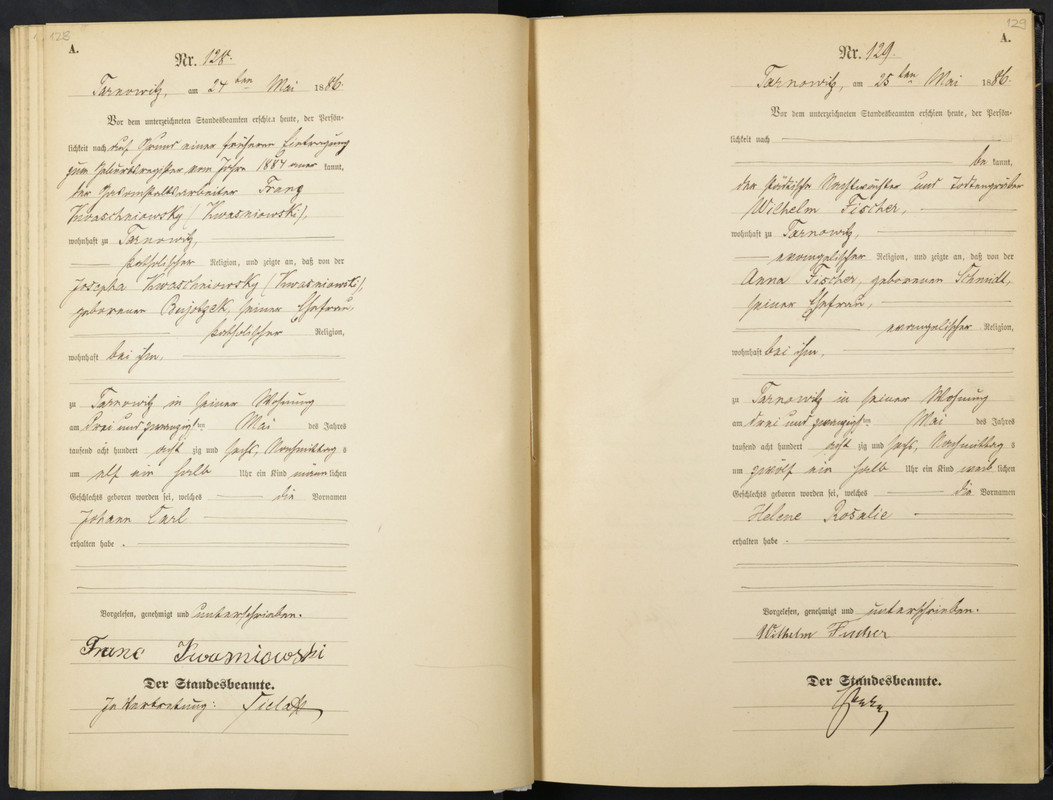 128
A.
Nr. 128.
Tarnowitz, am 24 ten Mai 1886.
Vor dem unterzeichneten Standesbeamten erschien heute, der Persön-
lichkeit nach auf Grund einer früheren Eintragung
zum Geburtsregister vom Jahre 1884 aner kannt,
der Gasanstaltsarbeiter Franz
Kwaschniowsky (Kwasniowski),
wohnhaft zu Tarnowitz,
katholischer Religion, und zeigte an, daß von der
Josepha Kwaschniowsky (Kwasniowski),
geborenen seiner Ehefrau,
katholischer Religion,
wohnhaft bei ihm,
zu Tarnowitz in seiner Wohnung
am drei und zwanzigsten Mai des Jahres
tausend acht hundert acht zig und sechs, Nachmittag s
um elf ein halb Uhr ein Kind männ lichen
Geschlechts geboren worden sei, welches die Vornamen
Johann Carl
erhalten habe .
Vorgelesen, genehmigt und unterschrieben.
Franc Kwasniowski
Der Standesbeamte.
In Vertretung:
129
A.
Nr. 129.
Tarnowitz, am 25 ten Mai 1886.
Vor dem unterzeichneten Standesbeamten erschien heute, der Persön-
lichkeit nach
be kannt,
der städtische Nachtwächter und Todtengräber
Wilhelm Fischer,
wohnhaft zu Tarnowitz,
evangelischer Religion, und zeigte an, daß von der
Anna Fischer, geborenen Schmidt,
seiner Ehefrau,
evangelischer Religion,
wohnhaft bei ihm,
zu Tarnowitz in seiner Wohnung
am drei und zwanzigsten Mai des Jahres
tausend acht hundert acht zig und sechs, Nachmittag s
um zwölf ein halb Uhr ein Kind weib lichen
Geschlechts geboren worden sei, welches die Vornamen
Helene Rosalie
erhalten habe .
Vorgelesen, genehmigt und unterschrieben.
Wilhelm Fischer
Der Standesbeamte.